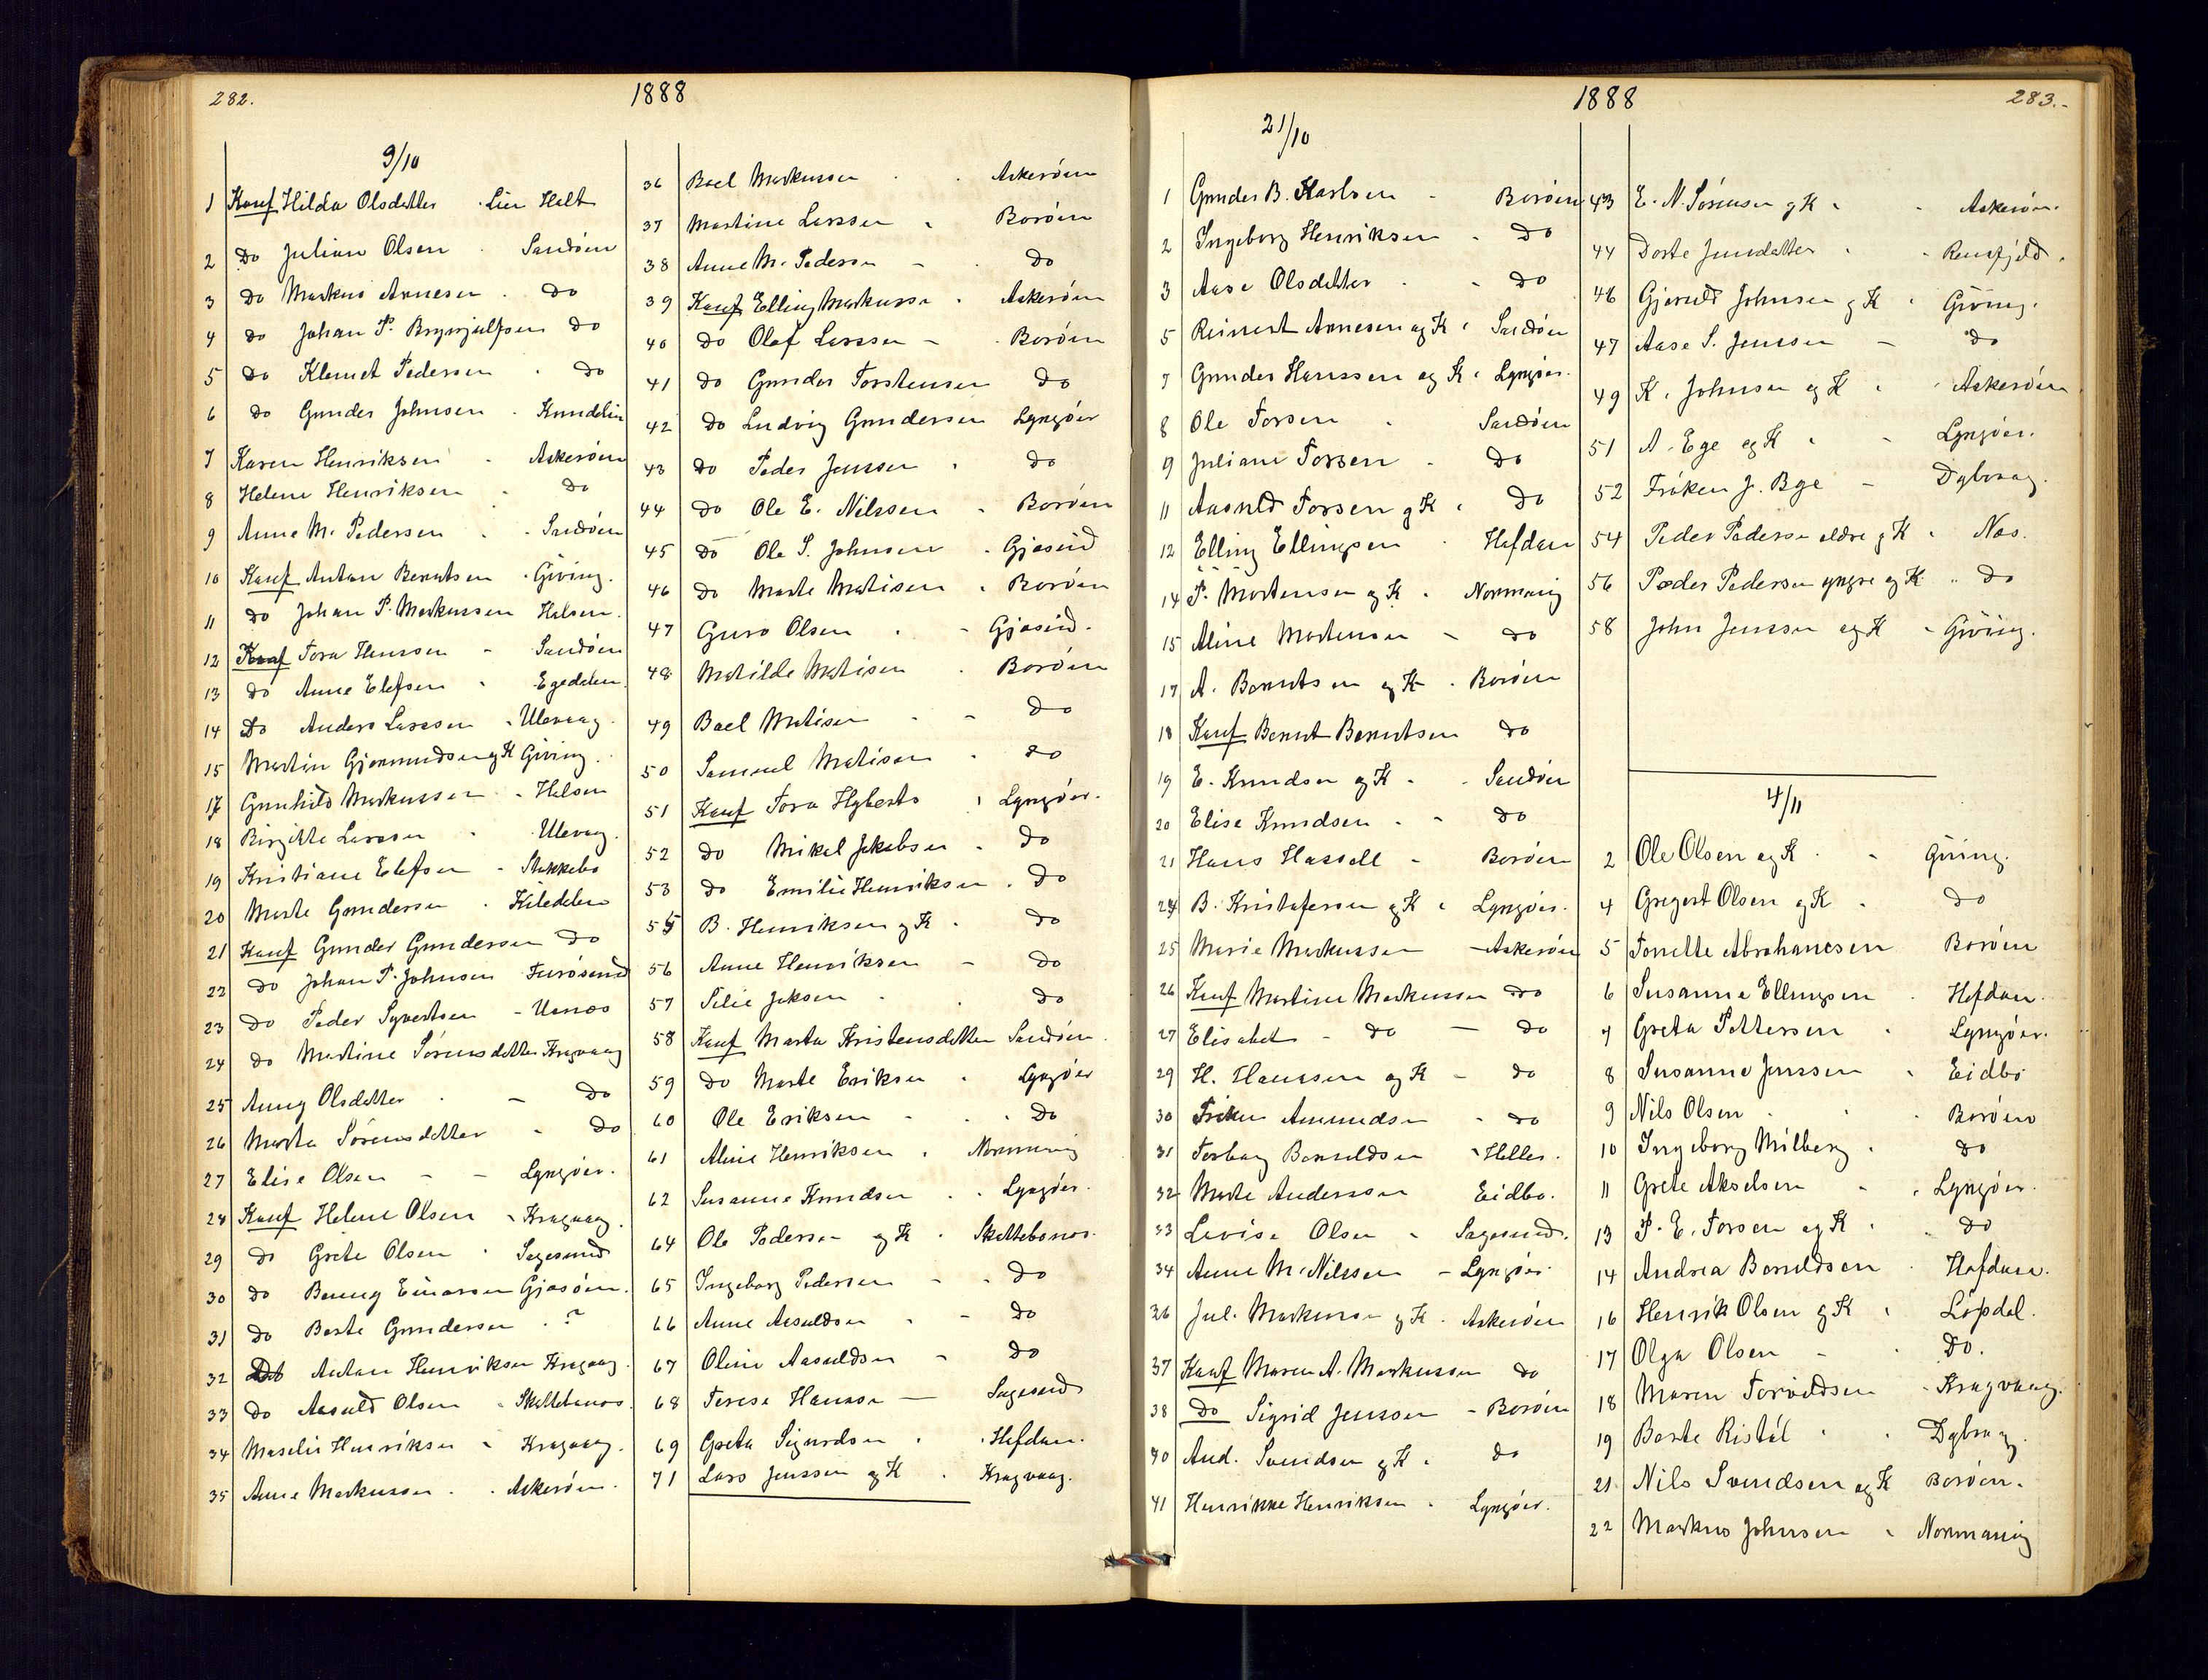 282.
1888
9/10
1 Konf Hilda Olsdatter Lien Holt
2 Do Juliane Olsen Sandöen
3 Do Markus Arnesen Do
4 Do Johan P. Brynjulfsen Do
5 Do Klemet Pedersen Do
6 Do Gunder Johnsen
7 Karen Henriksen Askeröen
8 Helene Henriksen Do
9 Anne M. Pedersen Sandöen
10 Konf Anton Berntsen Giving.
11 Do Johan P. Markussen Halsen.
12 Konf Tora Hansen Sandöen
13 Do Anne Elefsen Egedalen
14 Do Anders Larssen Ulevaag.
15 Martin Gjermundsen og K Giving.
17 Gunhild Markussen Halsen
18 Birgitte Larssen Ulevaag.
19 Kristiane Elefsen Stokkebo
20 Marte Gundersen Kiledalen
21 Konf Gunder Gundersen Do
22 Do Johan P. Johnsen Furösund
23 Do Peder Syvertsen Usnæs
24 Do Martine Sörensdatter Kragvaag
25 Anny Olsdatter Do
26 Marta Sörensdatter Do
27 Elise Olsen Lyngöer.
28 Konf Helene Olsen Kragvaag.
29 Do Grete Olsen Sagesund
30 Do Benny Einarsen Gjæsöen.
31 Do Berte Gundersen ?
32 Do Anton Henriksen Kragvaag.
33 Do Aasuld Olsen Skottebonæs.
34 Maselie Henriksen Kragvaag.
35 Anne Markussen Askeröen.
36 Boel Markussen Askeröen
37 Martine Larssen Boröen
38 Anne M. Pedersen Do
39 Konf Elling Markussen Askeröen
40 Do Olaf Larssen Boröen
41 Do Gunder Torstensen Do
42 Do Ludvig Gundersen Lyngöer
43 Do Peder Jenssen Do
44 Do Ole E. Nilssen Boröen
45 Do Ole S. Johnsen Gjæsund
46 Do Marte Matisen Boröen
47 Guro Olsen Gjæsund.
48 Matilde Matisen Boröen
49 Boel Matisen Do
50 Samuel Matisen Do
51 Konf Tora Hyberts Lyngöer.
52 Do Mikal Jakobsen Do
53 Do Emilie Henriksen Do
55 B. Henriksen og K Do
56 Anne Henriksen Do
57 Silie Jaksen Do
58 Konf Marta Kristensdatter Sandöen.
59 Do Marte Eriksen Lyngöer
60 Ole Eriksen Do
61 Aline Henriksen Normanvig
62 Susanne Knudsen Lyngöer.
64 Ole Pedersen og K Skottebonæs.
65 Ingeborg Pedersen Do
66 Anne Aasuldsen Do
67 Oline Aasuldsen Do
68 Terese Hanssen Sagesund
69 Greta Sigurdsen Hofdan.
71 Lars Jenssen og K Kragvaag.
1888
283.-
21/10
1 Gunder B. Karlsen Boröen
2 Ingeborg Henriksen Do
3 Aase Olsdatter Do
5 Reinert Arnesen og K Sandöen
7 Gunder Hanssen og K Lyngöer.
8 Ole Torsen Sandöen
9 Juliane Torsen Do
11 Aasuld Torsen og K Do
12 Elling Ellingsen Hofdan
14 P. Mortensen og K Normanvig
15 Aline Mortensen Do
17 A. Berntsen og K Boröen
18 Konf Bernt Berntsen Do
19 E. Knudsen og K Sandöen
20 Elise Knudsen Do
21 Hans Hassell Boröen
24 B. Kristofersen og K Lyngöer.
25 Marie Markussen Askeröen
26 Konf Martine Markussen Do
27 Elisabet Do Do
29 H. Hanssen og K Do
30 Fröken Amundsen Do
31 Torborg Bonuldsen Helles.
32 Marte Andersen Eidbo.
33 Lovise Olsen Sagesund.
34 Anne M. Nilssen Lyngöer.
36 Jul. Markussen og K Askeröen
37 Konf Maren A. Markussen Do
38 Do Sigrid Jenssen Boröen
40 And. Svendsen og K Do
41 Henrikke Henriksen Lyngöer.
43 E. N. Sörensen og K Askeröen.
44 Dorte Jensdatter Rensfjeld.
46 Gjeruld Johnsen og K Giving.
47 Aase S. Jenssen Do
49 K. Johnsen og K Askeröen
51 A. Ege og K Lyngöer.
52 Fröken J. Bge Dybvaag.
54 Peder Pedersen eldre og K Næs.
56 Peder Pedersen yngre og K Do
58 John Jenssen og K Giving.
4/11
2 Ole Olsen og K Giving.
4 Gregert Olsen og K Do
5 Tonette Abrahamsen Boröen
6 Susanne Ellingsen Hofdan.
7 Greta Pettersen Lyngöer.
8 Susanne Jenssen Eidbo
9 Nils Olsen Boröen
10 Ingeborg Milberg Do
11 Grete Akselsen Lyngöer.
13 P. E. Torsen og K Do
14 Andrea Bonuldsen Hofdan.
16 Henrik Olsen og K Löpdal.
17 Olga Olsen Do.
18 Maren Torvildsen Kragvaag.
19 Berte Ristöl Dybvaag.
21 Nils Svendsen og K Boröen.
22 Markus Johnsen Normanvig